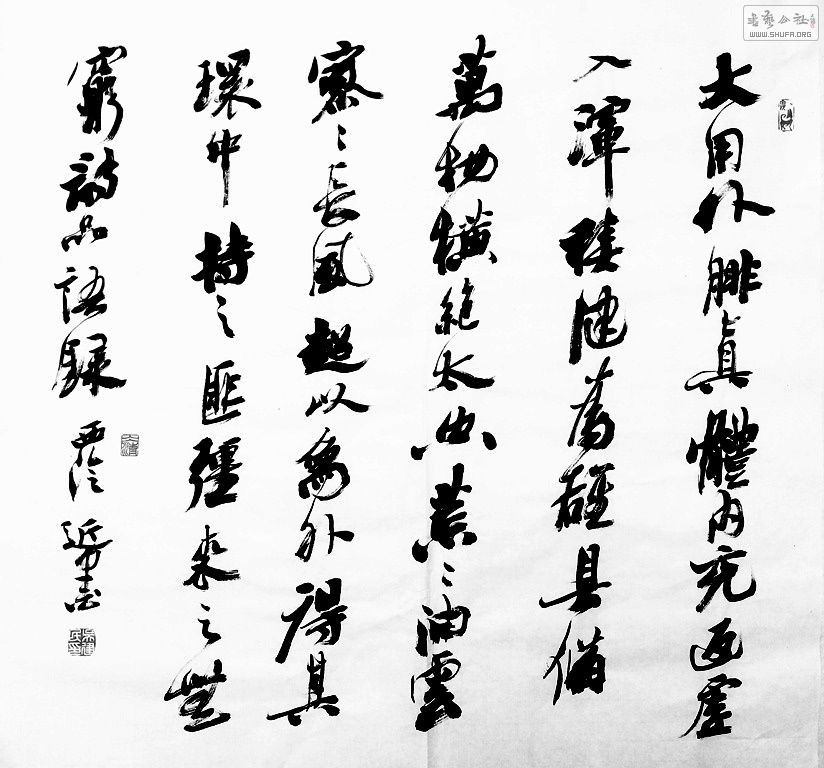 書藝公社
WWW.SHUFA.ORG
大用外腓真體內充返虛
入渾積健為雄具備
萬物橫絕太空荒〻油雲
寥〻長風超以象外得其
環中持之匪彊來之無
窮詩品語錄 西泠 書